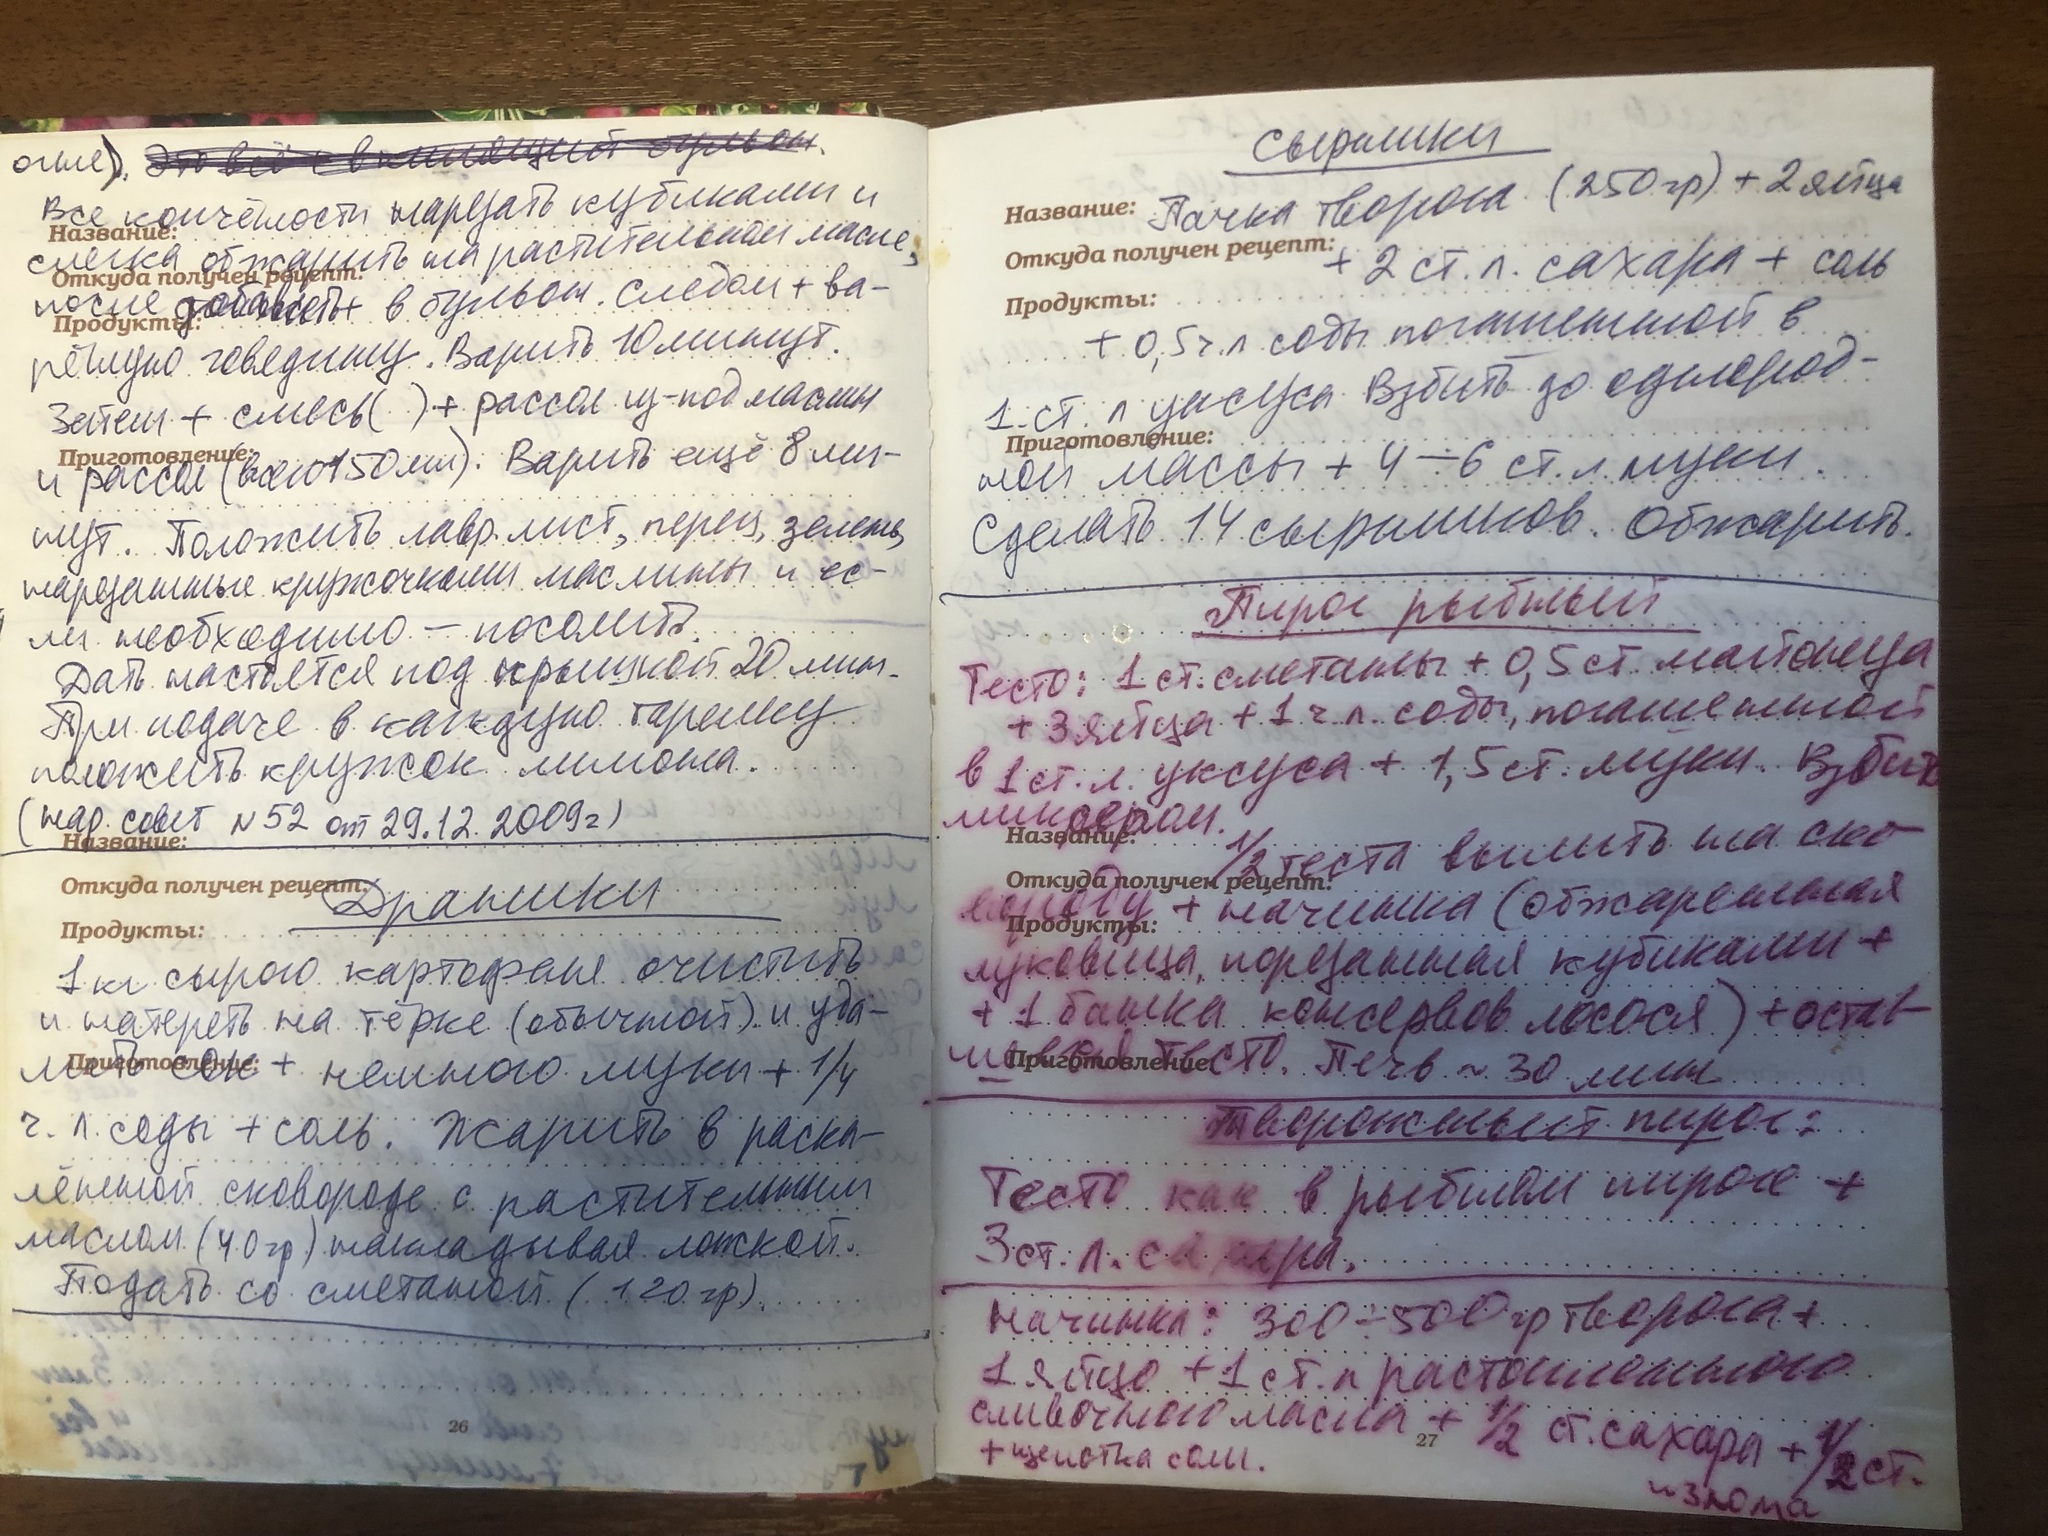 огне).
Все копчёности нарезать кубиками и
Название:
слегка обжарить на растительном масле,
Откуда получен рецепт:
после в бульон. Следом + ва-
Продукты:
рёную говядину. Варить 10 минут.
Затем + смесь( ) + рассол из-под маслин
Приготовление:
и рассол (всего 150 мл). Варить ещё 8 ми-
нут. Положить лавр. лист, перец, зелень,
нарезанные кружочками маслины и ес-
ли необходимо – посолить.
Дать настоятся под крышкой 20 мин.
При подаче в каждую тарелку
положить кружок лимона.
(нар. совет №52 от 29.12.2009г)
Название:
Откуда получен рецепт:
Драники
Продукты:
1 кг сырого картофеля очистить
и натереть на тёрке (обычной) и уда-
лить сок + немного муки + 1/4
Приготовление:
ч. л. соды + соль. Жарить в раска-
лённой сковороде с растительным
маслом (40 гр) накладывая ложкой.
Подать со сметаной (120 гр).
26
Сырники
Название: Пачка творога (250 гр) + 2 яйца
Откуда получен рецепт:
+ 2 ст. л. сахара + соль
Продукты:
+ 0,5 ч. л соды погашенной в
1 ст. л уксуса Взбить до однород-
Приготовление:
ной массы + 4 ÷ 6 ст. л. муки.
Сделать 14 сырников. Обжарить.
Пирог рыбный
Тесто: 1 ст. сметаны + 0,5 ст. майонеза
+ 3 яйца + 1 ч л. соды, погашенной
в 1 ст. л. уксуса + 1,5 ст. муки. Взбить
миксером.
Название:
1/2 теста вылить на ско-
Откуда получен рецепт:
вороду + начинка (обжаренная
Продукты:
луковица, порезанная кубиками +
+ 1 банка консервов лосося) + остав-
Приготовление:
тесто. Печь ~ 30 мин
Творожный пирог:
Тесто как в рыбном пироге +
3 ст. л. сахара.
Начинка: 300 ÷ 500 гр творога +
1 яйцо + 1 ст. л растопленного
сливочного масла + 1/2 ст. сахара + 1/2 ст.
27
+ щепотка соли.
изюма